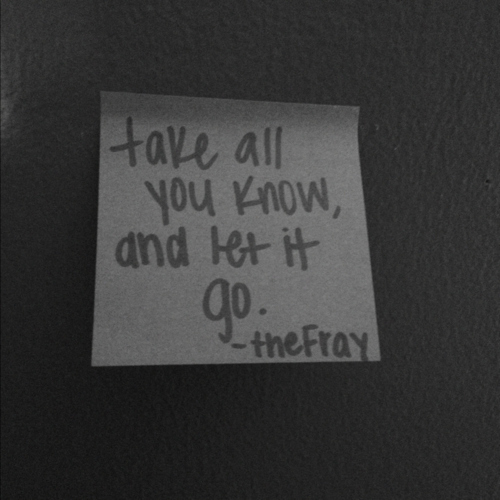 take all
you know,
and let it
go.
-theFray